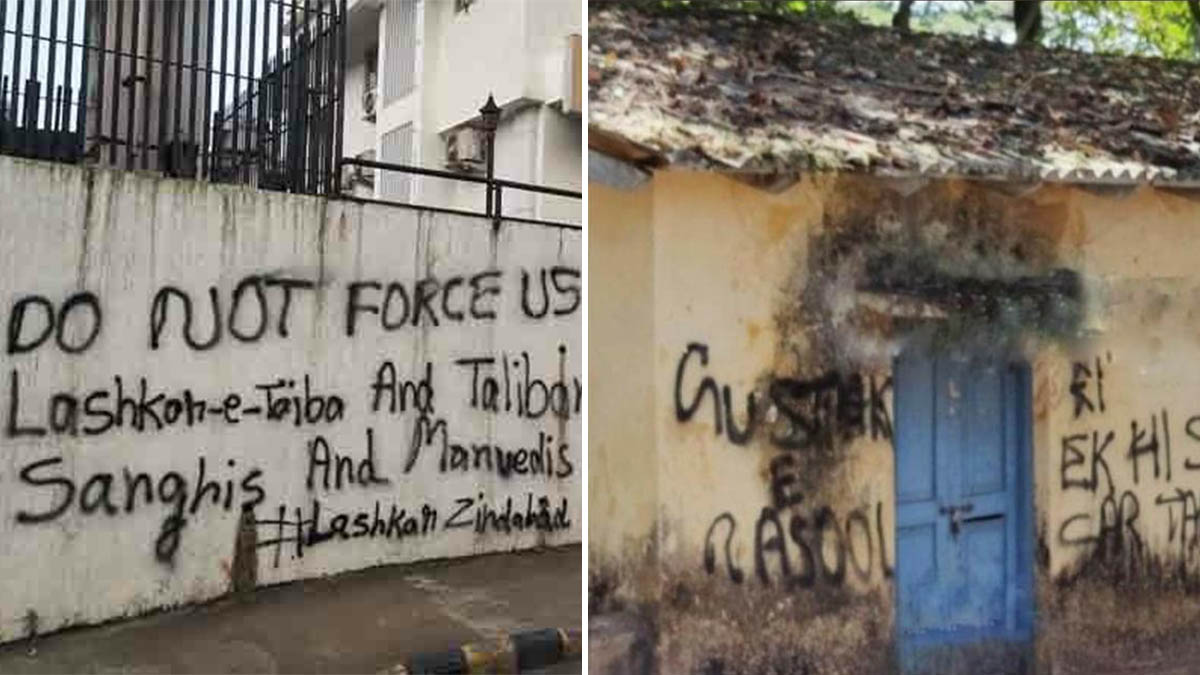 DO NOT FORCE US
Lashkar-e-Taiba And Taliban
Sanghis And Manvedis
#Lashkar Zindabad
GUSTHK
E
RASOOL
KI
EK HI S
SAR TA